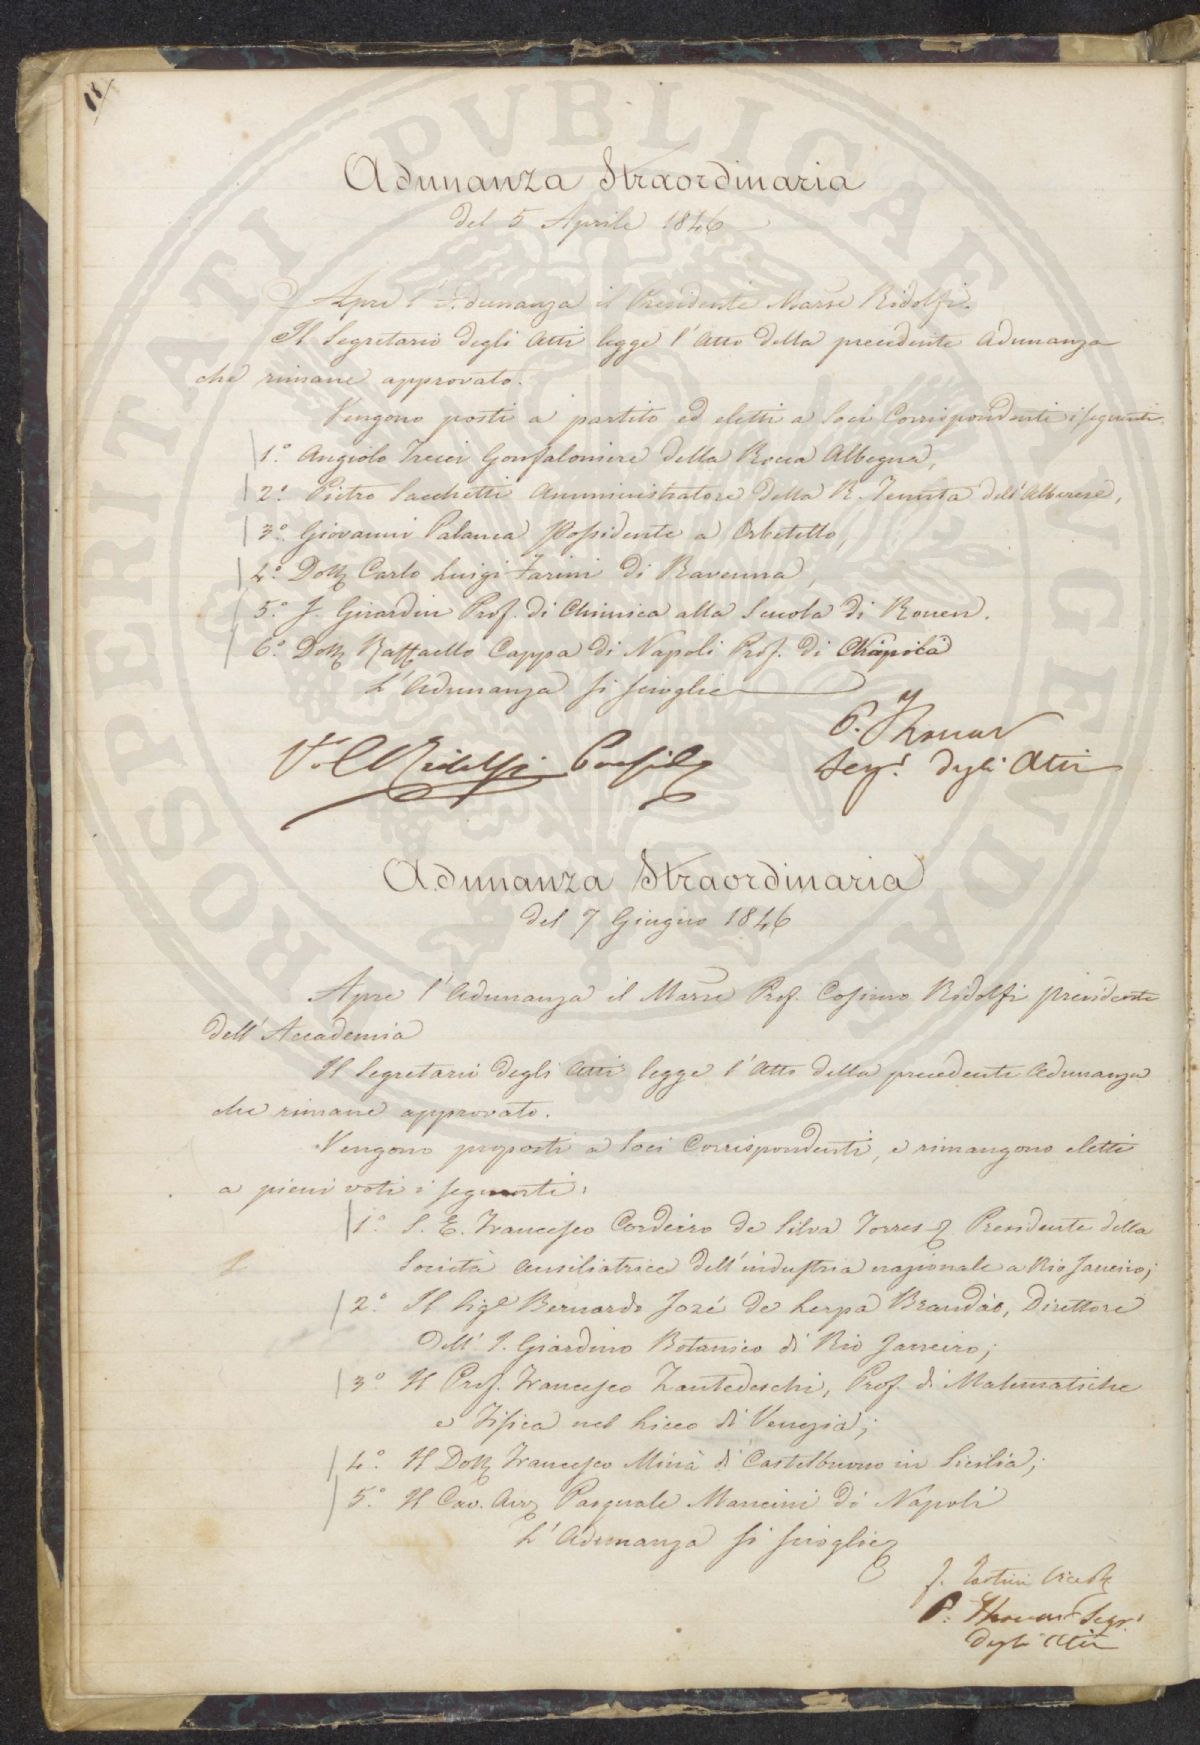 18
Adunanza Straordinaria
del 5 Aprile 1846
Apre l'Adunanza il Presidente March.e Ridolfi.
Il Segretario degli Atti legge l'Atto della precedente Adunanza
che rimane approvato.
Vengono posti a partito ed eletti a Soci Corrispondenti i seguenti
1.° Angiolo Gonfaloniere della Rocca Albegna,
2.° Pietro Sacchetti Amministratore della R. Tenuta dell'Alberese,
3.° Giovanni Palanca Possidente a Orbetello,
4.° Dott. Carlo Luigi Farini di Ravenna,
5.° J. Girardin Prof. di Chimica alla Scuola di Rouen.
6.° Dott. Raffaello Cappa di Napoli Prof. di
L'Adunanza si scioglie
V.° C. Ridolfi
P. Thouar
Seg.° degli Atti
Adunanza Straordinaria
del 7 Giugno 1846
Apre l'Adunanza il March.e Prof. Cosimo Ridolfi presidente
dell'Accademia
Il Segretario degli Atti legge l'Atto della precedente Adunanza
che rimane approvato.
Vengono proposti a Soci Corrispondenti, e rimangono eletti
a pieni voti i seguenti:
1.° S. E. Francesco Cordeiro de Silva Torres Presidente della
Società Ausiliatrice dell'industria nazionale a Rio Janeiro;
2.° Il Sig.e Bernardo José de Serpa Brandáo, Direttore
dell' I. Giardino Botanico di Rio Janeiro;
3.° Il Prof. Francesco Zantedeschi, Prof. di Matematiche
e Fisica nel Liceo di Venezia;
4.° Il Dott. Francesco Minà di Castelbuono in Sicilia;
5.° Il Cav. Avv. Pasquale Mancini di Napoli
L'Adunanza si scioglie
P. Thouar Segr.
degli Atti
PROSPERITATI PVBLICAE AVGENDAE